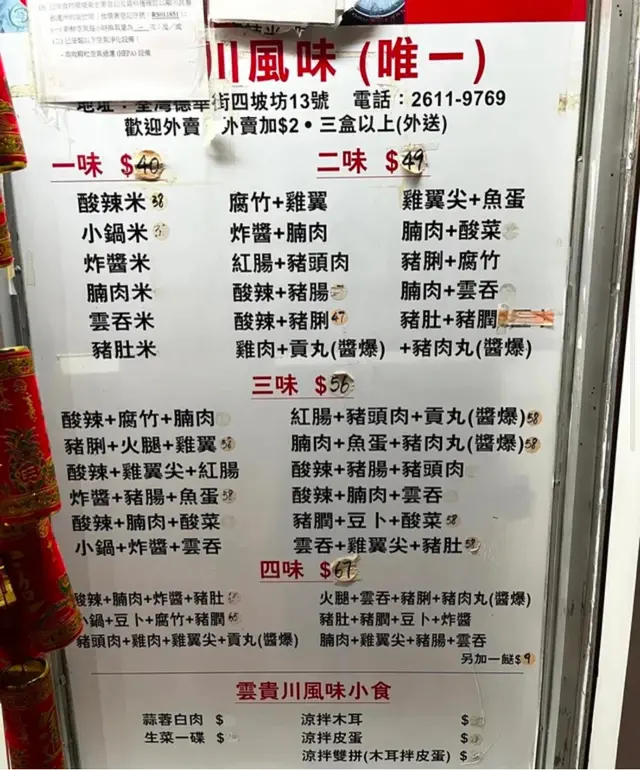 川風味(唯一)
地址：荃灣德華街四坡坊13號 電話：2611-9769
歡迎外賣 外賣加$2•三盒以上(外送)
一味 $40
二味 $49
酸辣米 38 腐竹+雞翼 雞翼尖+魚蛋
小鍋米 炸醬+腩肉 腩肉+酸菜
炸醬米 紅腸+豬頭肉 豬脷+腐竹
腩肉米 酸辣+豬腸 腩肉+雲吞
雲吞米 酸辣+豬脷 47 豬肚+豬膶
豬肚米 雞肉+貢丸(醬爆) +豬肉丸(醬爆)
三味 $56
酸辣+腐竹+腩肉 紅腸+豬頭肉+貢丸(醬爆) 58
豬脷+火腿+雞翼 58 腩肉+魚蛋+豬肉丸(醬爆) 58
酸辣+雞翼尖+紅腸 酸辣+豬腸+豬頭肉
炸醬+豬腸+魚蛋 58 酸辣+腩肉+雲吞
酸辣+腩肉+酸菜 豬膶+豆卜+酸菜 58
小鍋+炸醬+雲吞 雲吞+雞翼尖+豬肚
四味 $67
酸辣+腩肉+炸醬+豬肚 火腿+雲吞+豬脷+豬肉丸(醬爆)
小鍋+豆卜+腐竹+豬膶 豬肚+豬膶+豆卜+炸醬
豬頭肉+雞肉+雞翼尖+貢丸(醬爆) 腩肉+雞翼尖+豬腸+雲吞
另加一餸$9
雲貴川風味小食
蒜蓉白肉 $ 涼拌木耳 $
生菜一碟 $ 涼拌皮蛋 $
涼拌雙拼(木耳拌皮蛋) $